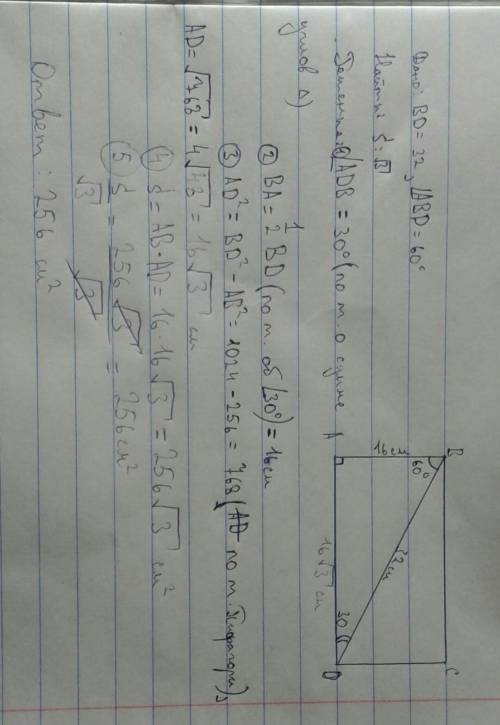 Дано: BD = 32, ∠ABD = 60°
Найти: S : √3
Решение: ① ∠ADB = 30° (по т. о сумме
углов Δ)
② BA = 1/2 BD (по т. об ∠30°) = 16 см
③ AD² = BD² - AB² = 1024 - 256 = 768 (по т. Пифагора),
AD = √768 = 4√48 = 16√3 см
④ S = AB · AD = 16 · 16√3 = 256√3 см²
⑤ S/√3 = 256√3/√3 = 256 см²
Ответ: 256 см²
B
C
A
D
60°
16 см
32 см
30
16√3 см